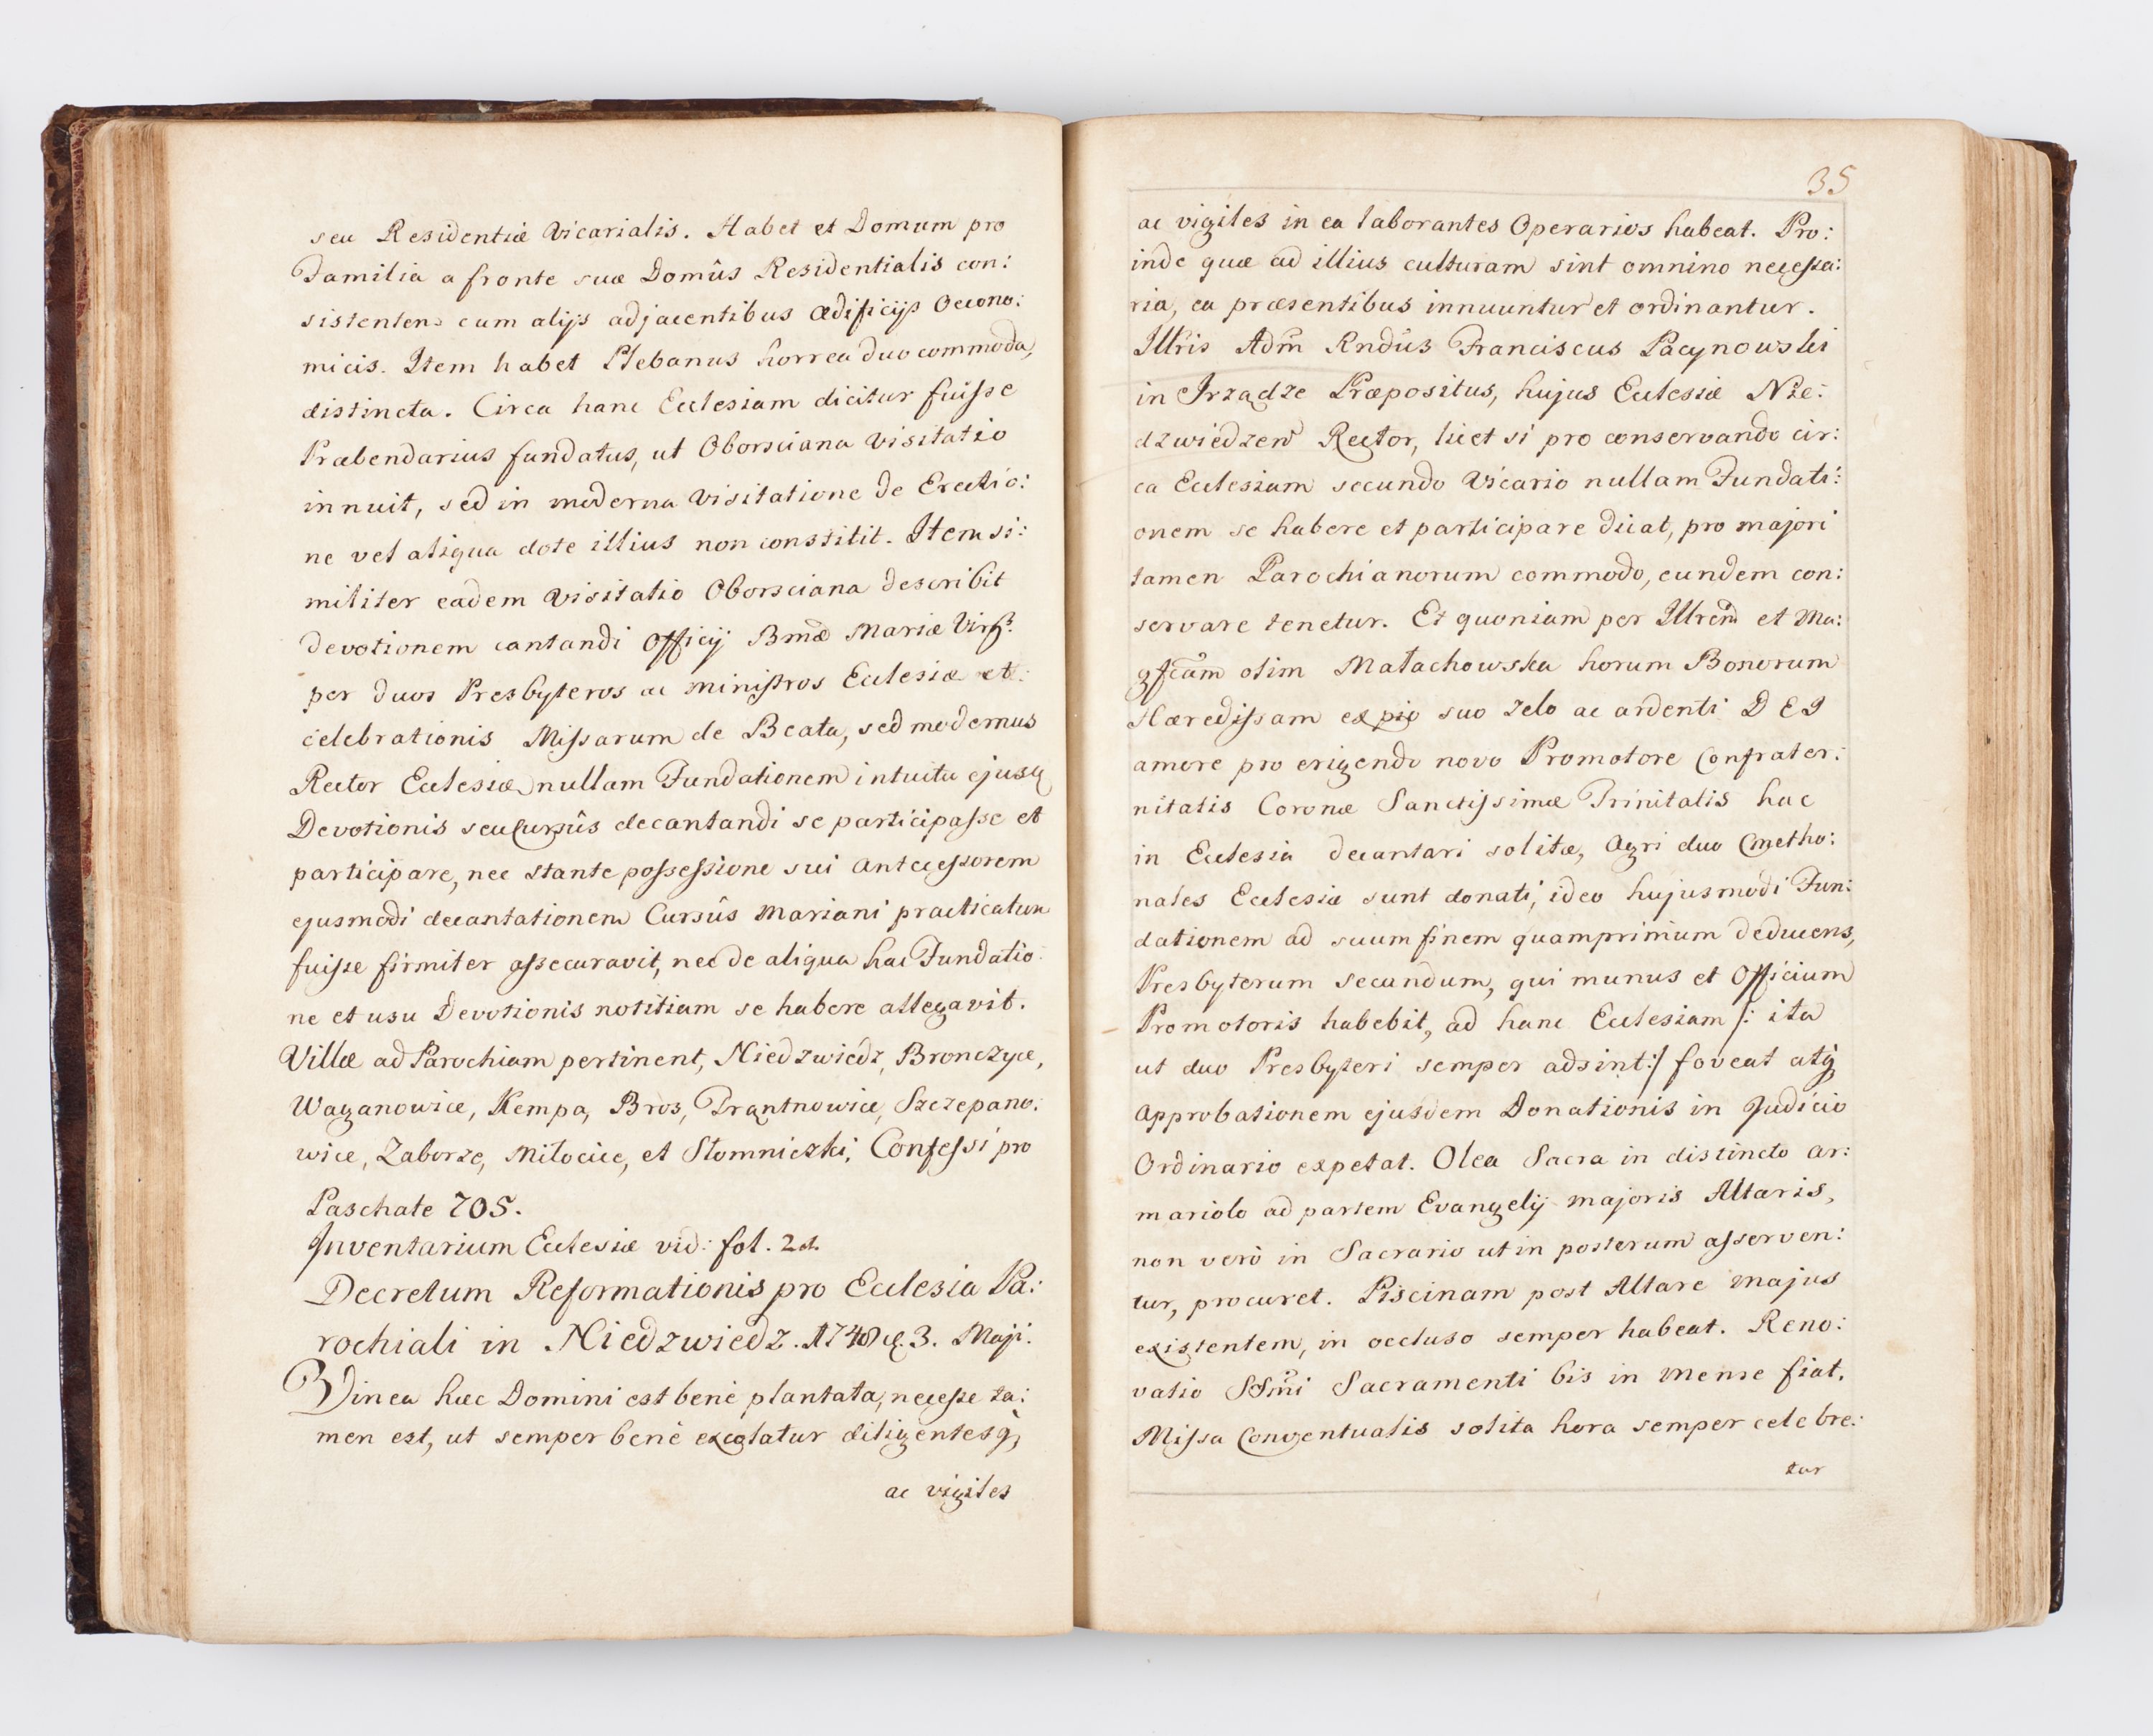 seu Residentiæ Vicarialis. Habet et Domum pro
Familia a fronte suæ Domûs Residentialis con:
sistentem cum alijs adjacentibus ædificijs Oecono:
micis. Item habet Plebanus horrea duo commoda,
distincta. Circa hanc Ecclesiam dicitur fuisse
Præbendarius fundatus, ut Oborsciana Visitatio
innuit, sed in moderna Visitatione de Erectio:
ne vel aliqua dote illius non constitit. Item si:
militer eadem Visitatio Oborsciana describit
devotionem cantandi Officij Bmæ Mariæ Virg:
per duos Presbyteros ac ministros Ecclesiæ et
celebrationis Missarum de Beata, sed modernus
Rector Ecclesiæ nullam Fundationem intuitu ejusq
Devotionis seu Cursûs decantandi se participasse et
participare, nec stante possessione sui Antecessorem
ejusmodi decantationem Cursûs Mariani practicatum
fuisse firmiter assecuravit, nec de aliqua hac Fundatio
ne et usu Devotionis notitiam se habere allegavit.
Villæ ad Parochiam pertinent, Niedzwiédz, Bronczyce,
Waganowice, Kempa, Bros, Prąntnowice, Szczepano:
wice, Zaborze, Miłocice, et Słomniczki, Confessi pro
Paschate 705.
Inventarium Ecclesiæ vid: fol. 2d.
Decretum Reformationis pro Ecclesia Pa:
rochiali in Niedzwiedz. 1748 3. Maji.
Vinea hæc Domini est benè plantata, necesse ta:
men est, ut semper benè excolatur diligentesq,
ac vigiles
35
ac vigiles in ea laborantes Operarios habeat. Pro:
inde quæ ad illius culturam sint omnino necessa:
ria, ea præsentibus innuuntur et ordinantur.
Illris Adm Rndus Franciscus Pacynowski
in Irządze Præpositus, hujus Ecclesiæ Nie:
dzwiedzen Rector, licet si pro conservando cir:
ca Ecclesiam secundo Vicario nullam Fundati:
onem se habere et participare dicat, pro majori
tamen Parochianorum commodo, eundem con:
servare tenetur. Et quoniam per Illrem et Ma:
gfcam olim Małachowska horum Bonorum
Hæredissam ex pio suo zelo ac ardenti DEI
amore pro erigendo novo Promotore Confrater:
nitatis Coronæ Sanctissimæ Trinitatis hac
in Ecclesia decantari solitæ, Agri duo Cmetho:
nales Ecclesiæ sunt donati, ideo hujusmodi Fun:
dationem ad suum finem quamprimum deducens,
Presbyterum secundum, qui munus et Officium
Promotoris habebit, ad hanc Ecclesiam /: ita
ut duo Presbyteri semper adsint :/ foveat atq
Approbationem ejusdem Donationis in Judicio
Ordinario expetat. Olea Sacra in distincto ar:
mariolo ad partem Evangelij majoris Altaris,
non verò in Sacrario ut in posterum asserven:
tur, procuret. Piscinam post Altare majus
existentem, in occluso semper habeat. Reno:
vatio SSmi Sacramenti bis in mense fiat.
Missa Conventualis solita hora semper celebre:
tur